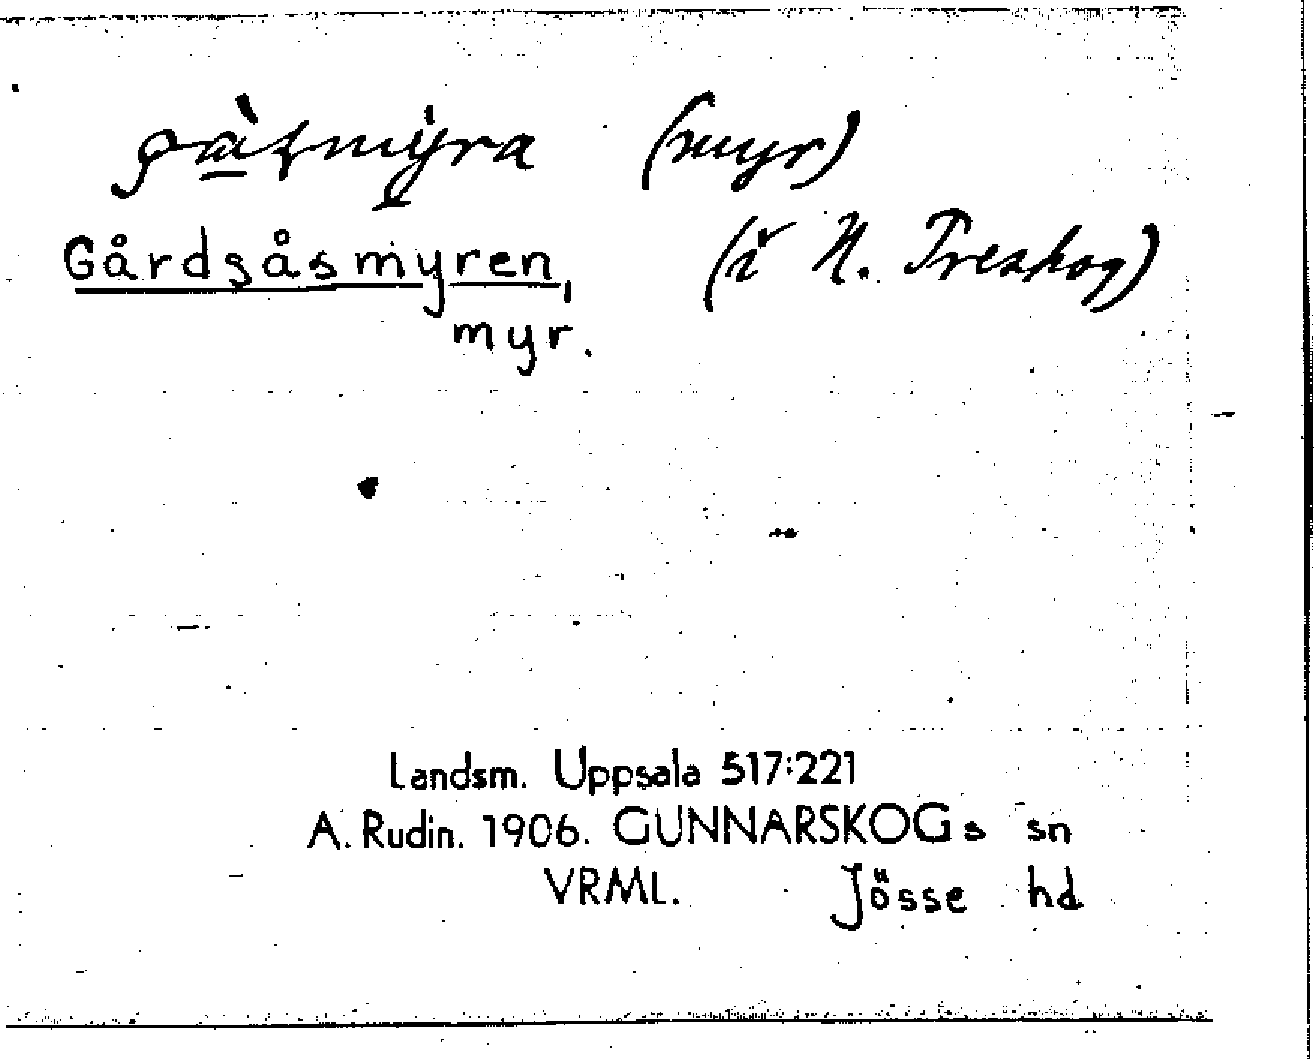 (myr)
Gårdsåsmyren, (i N. Treskog)
myr.
Landsm. Uppsala 517:221
A. Rudin. 1906. GUNNARSKOGs sn
VRML. Jösse hd